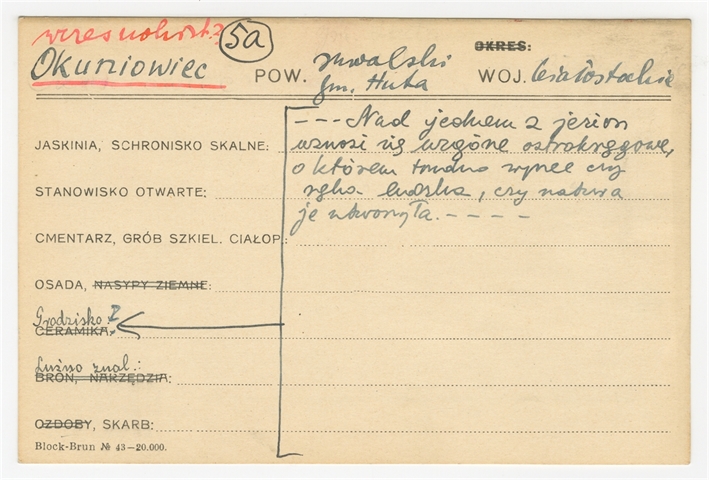 wczesnohist.?
5a
Okuniowiec
POW. suwalski
gm. Huta
OKRES:
WOJ. białostockie
- - - Nad jednem z jezior
wznosi się wzgórze ostrokręgowe,
o którem trudno wyrzec czy
ręka ludzka, czy natura
je utworzyła. - - - -
JASKINIA, SCHRONISKO SKALNE:
STANOWISKO OTWARTE:
CMENTARZ, GRÓB SZKIEL. CIAŁOP.:
OSADA, NASYPY ZIEMNE:
Grodzisko ?
CERAMIKA:
Luźno znal.:
BROŃ, NARZĘDZIA:
OZDOBY, SKARB:
Block-Brun № 43—20.000.